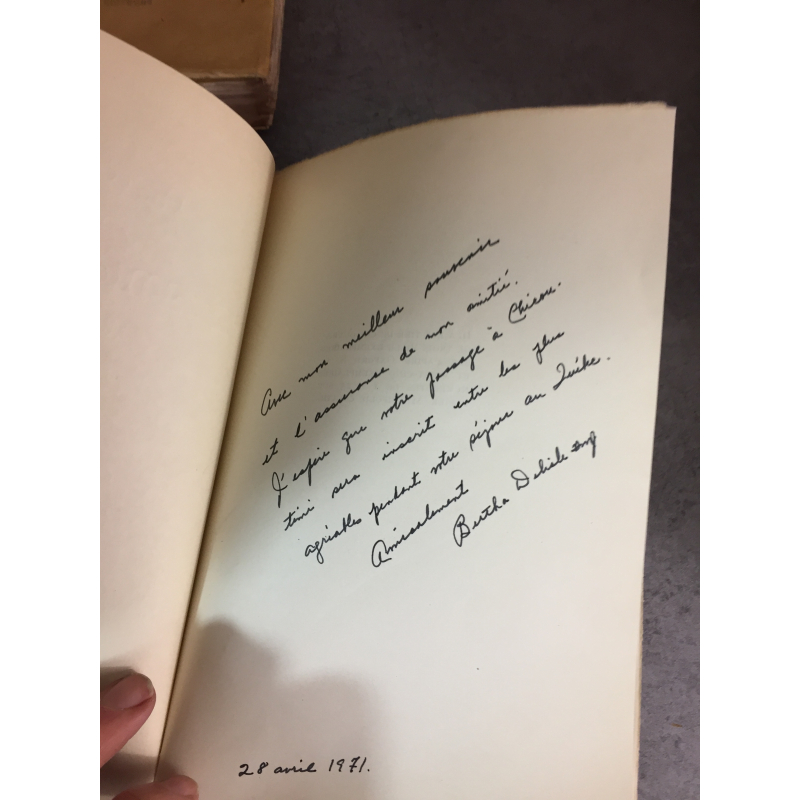 Avec mon meilleur souvenir
et l'assurance de mon amitié.
J'espère que votre passage à Chicou-
timi sera inscrit entre les plus
agréables pendant votre séjour au Québec.
Amicalement
Bertha Delisle
28 avril 1971.